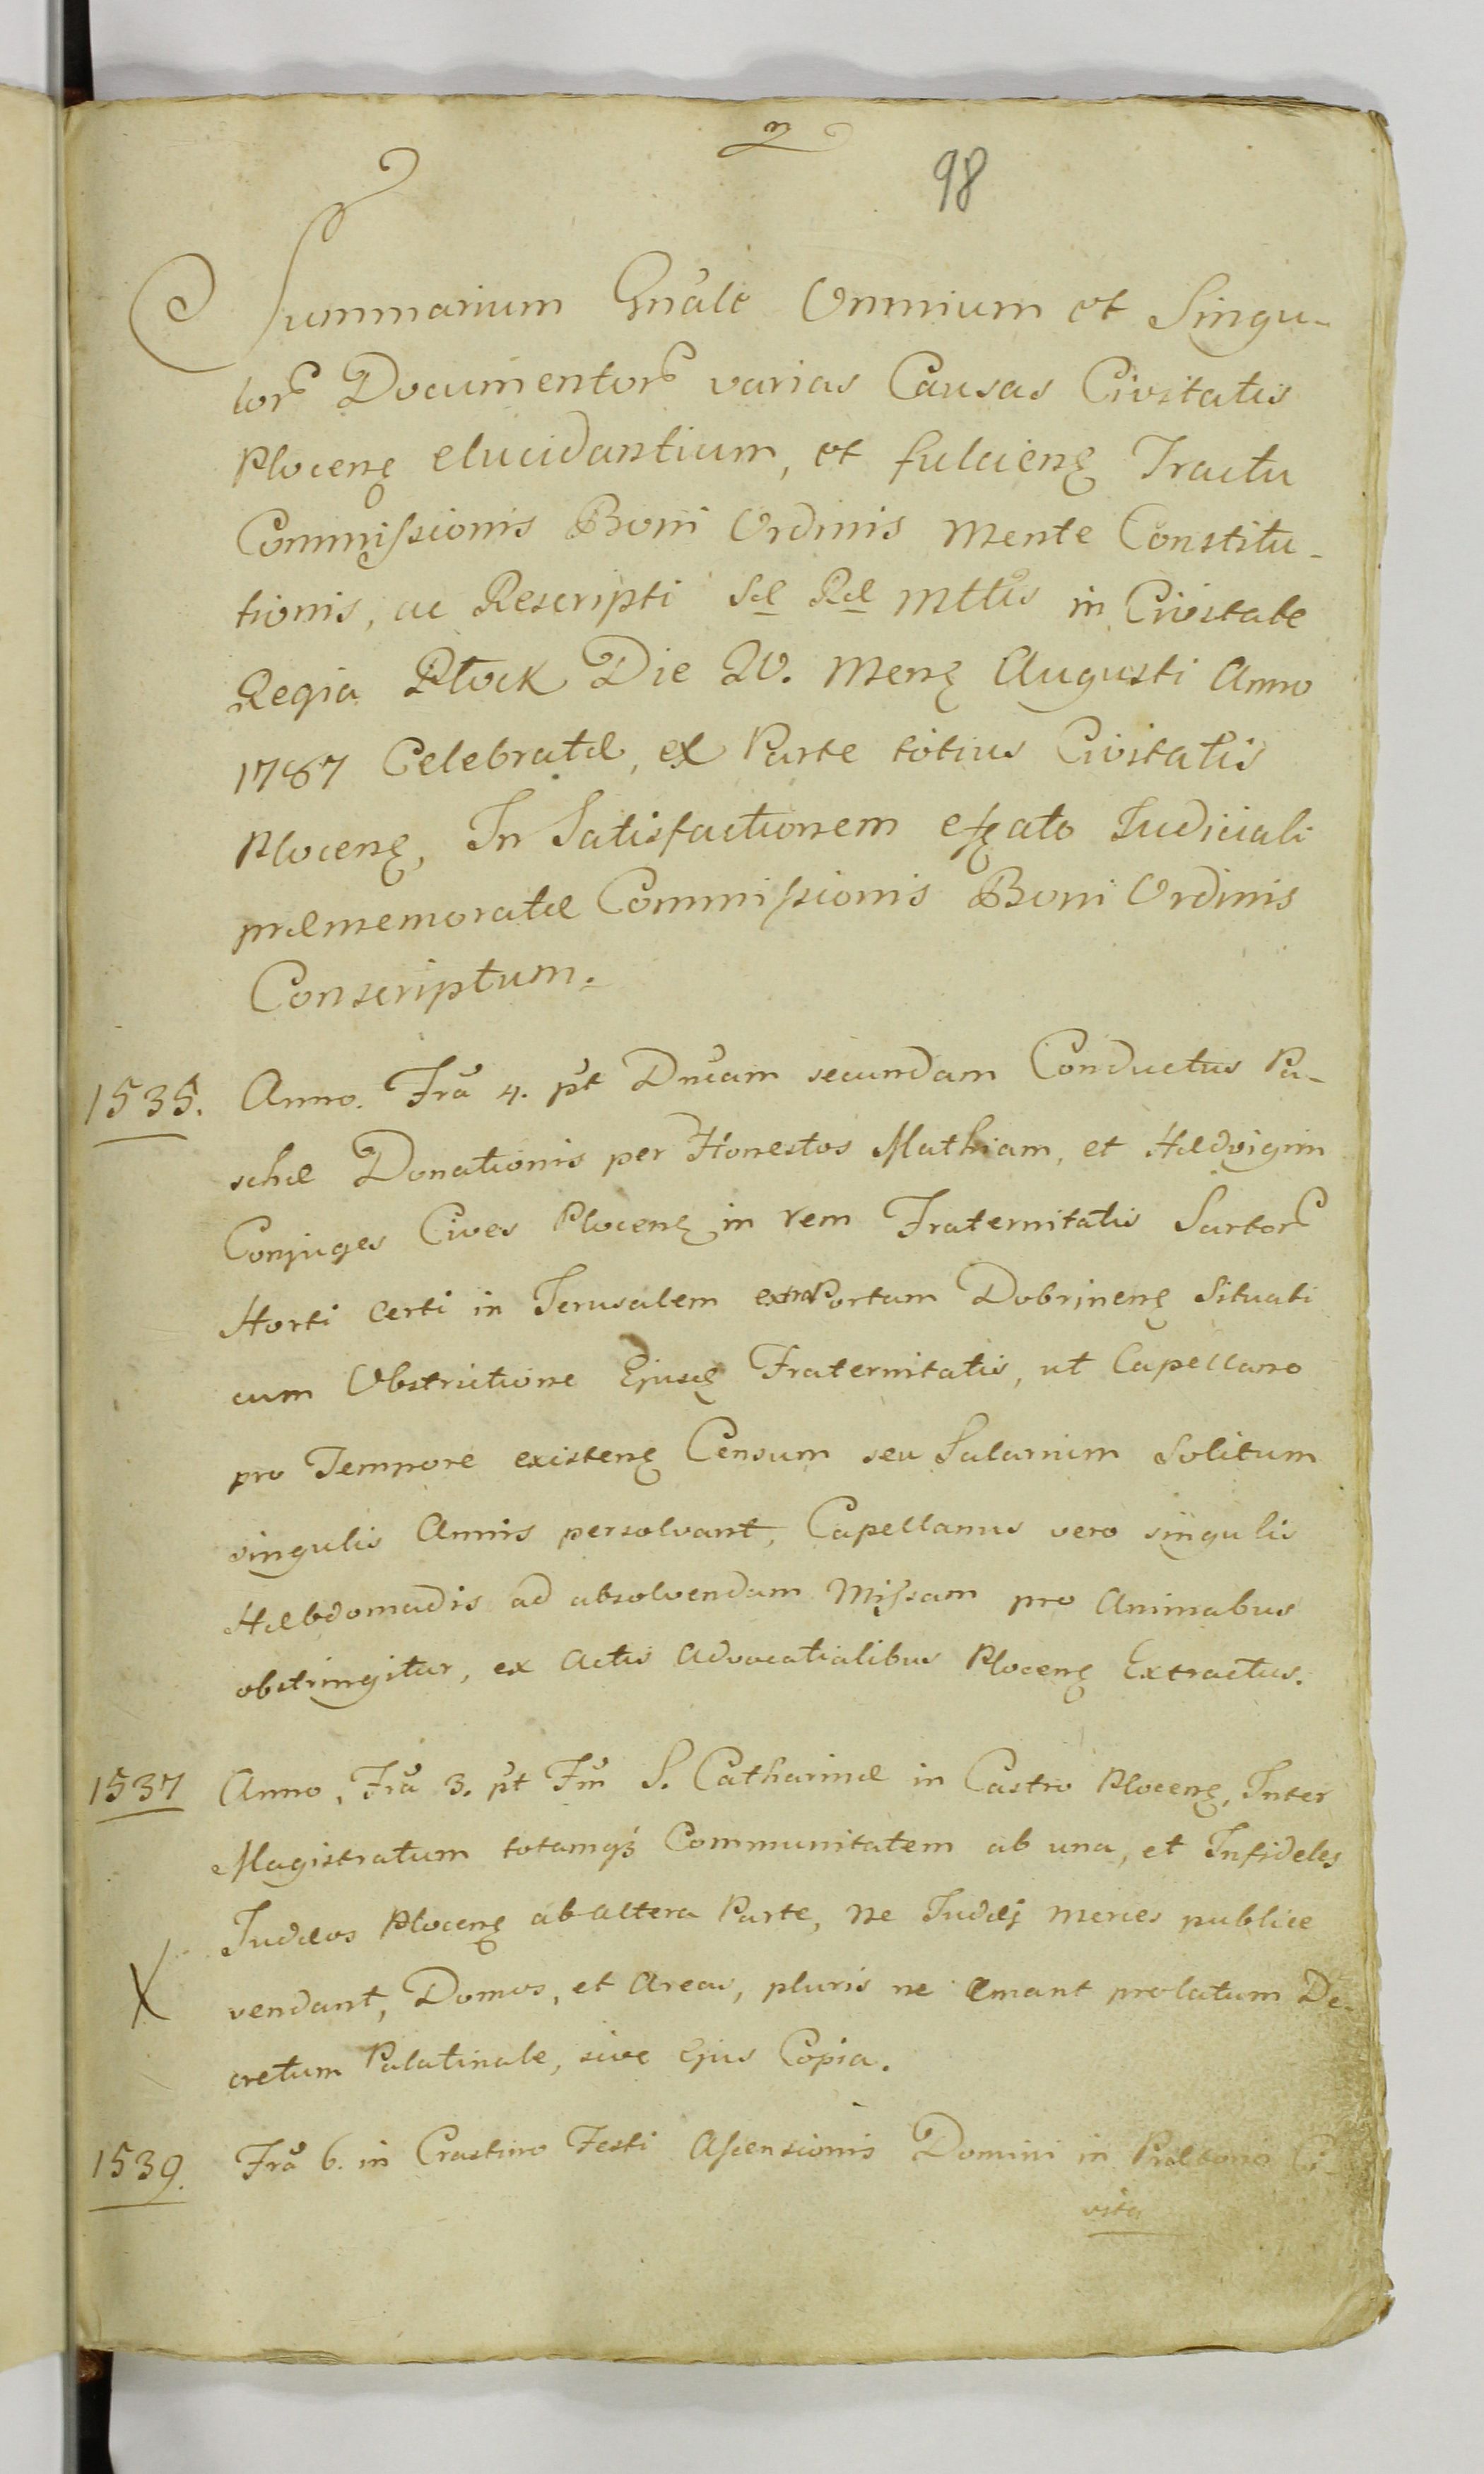 98
Summarium Gnãle Omnium et Singu-
lorũ Documentorũ varias Causas Civitatis
Plocenę elucidantium, et fulcienę Tractu
Commissionis Boni Ordinis mente Constitu-
tionis, ac Rescripti Sæ Ræ Mttis in Civitate
Regia Płock Die 20. Menę Augusti Anno
1787 Celebratæ, ex Parte totius Civitatis
Plocenę, In Satisfactionem Judiciali
præmemoratæ Commissionis Boni Ordinis
Conscriptum.
1535. Anno. Frã 4. pt Dnicam secundam Conductus Pa-
schæ Donationis per Honestos Mathiam, et Hædvigim
Conjuges Cives Plocenę in rem Fraternitatis Sartorũ
Horti certi in Jerusalem extra Portam Dobrinenę Situati
cum Obstrictione Ejusdę Fraternitatis, ut Capellano
pro Tempore existenę Censum seu Salarium Solitum
singulis Annis persolvant, Capellanus vero singulis
Hæbdomadis ad absolvendam Missam pro Animabus
obstringitur, ex Actis Advocatialibus Plocenę Extractus.
1537 Anno, Frã 3. pt Fm S. Catharinæ in Castro Plocenę, Inter
Magistratum totamqꝫ Communitatem ab una, et Infideles
Judæos Plocenę ab altera Parte, ne Judæj merces publice
X vendant, Domos, et Areas, pluris ne Emant prolatum De-
cretum Palatinale, sive Ejus Copia.
1539. Frã 6. in Crastino Festi Ascensionis Domini in Ci-
vita